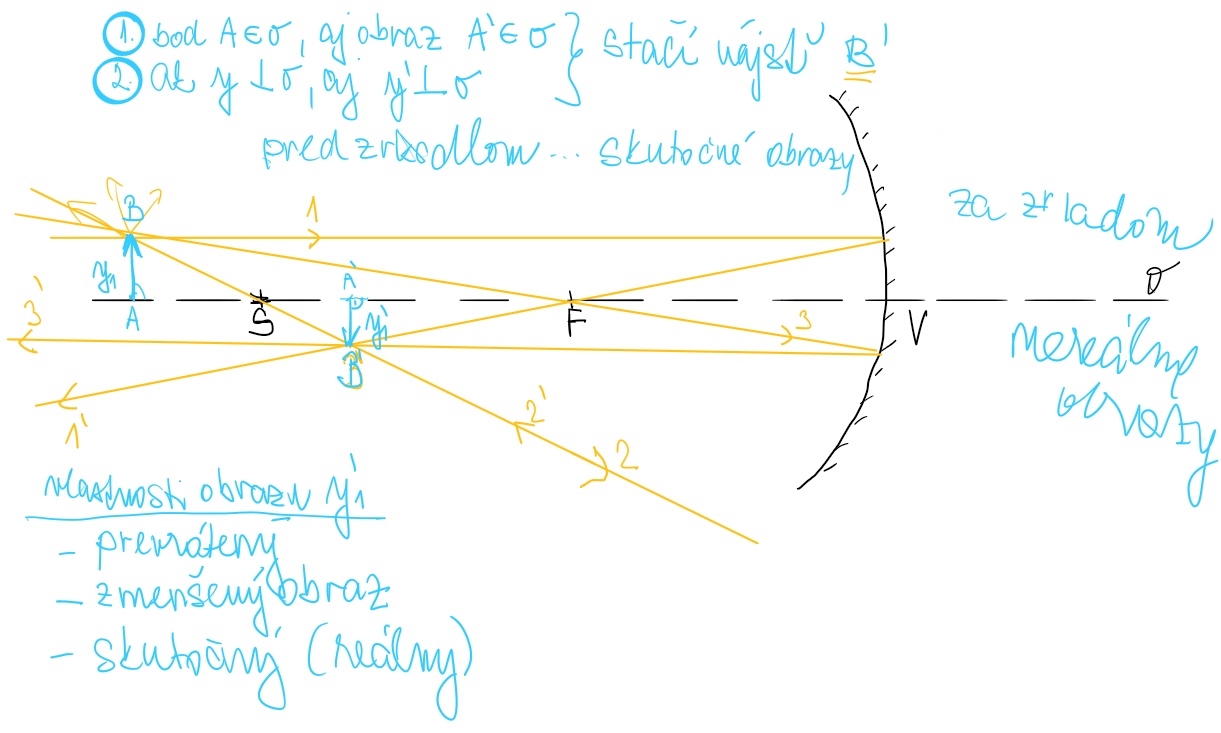 1. bod A∈σ, aj obraz A'∈σ } stačí nájsť B'
2. ak y⊥σ, aj y'⊥σ
pred zrkadlom ... skutočné obrazy
za zrkadlom
nereálne obrazy
B
1
y₁
A
S
A'
y₁'
B'
F
3
V
σ
3'
1'
2'
2
vlastnosti obrazu y₁'
- prevrátený
- zmenšený obraz
- skutočný (reálny)